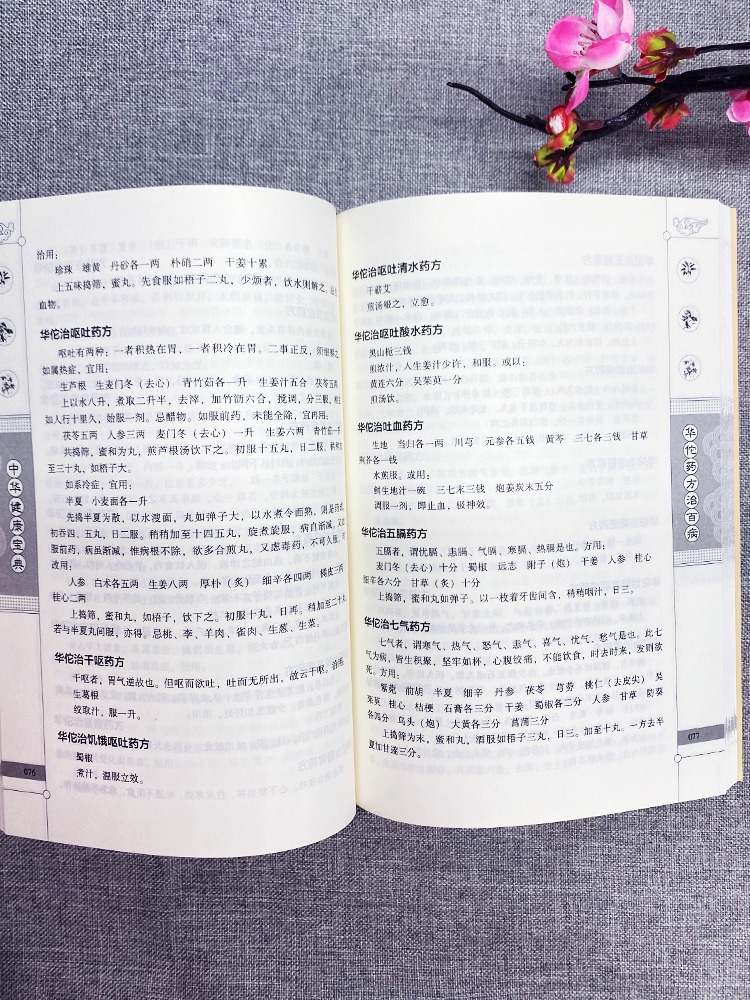 治用：
珍珠 雄黄 丹砂各一两 朴硝二两 干姜十累
上五味捣筛，蜜丸。先食服如梧子二丸，少烦者，饮水则解之，
血物。
华佗治呕吐药方
呕吐有两种：一者积热在胃，一者积冷在胃。二事正反，须细察之
如属热症，宜用：
生芦根 生麦门冬（去心） 青竹茹各一升 生姜汁五合 茯苓五两
上以水八升，煮取二升半，去滓，加竹沥六合，搅调，分三服，相去
如人行十里久，始服一剂。忌醋物。如服前药，未能全除，宜再用：
茯苓五两 人参三两 麦门冬（去心）一升 生姜六两 青竹茹一升
共捣筛，蜜和为丸，煎芦根汤饮下之。初服十五丸，日二服。稍稍加
至三十丸，如梧子大。
如系冷症，宜用：
半夏 小麦面各一升
先捣半夏为散，以水溲面，丸如弹子大，以水煮令面熟，则是药成。
初吞四、五丸，日二服。稍稍加至十四五丸，旋煮旋服，病自渐减，又
服前药，病虽渐减，惟病根不除，欲多合煎丸，又虑毒药，不可久服，可
改用：
人参 白术各五两 生姜八两 厚朴（炙） 细辛各四两 橘皮三两
桂心二两
上捣筛，蜜和丸，如梧子，饮下之。初服十丸，日再。稍加至二十丸。
若与半夏丸间服，亦得。忌桃、李、羊肉、雀肉、生葱、生菜。
华佗治干呕药方
干呕者，胃气逆故也。但呕而欲吐，吐而无所出，故云干呕，治用：
生葛根
绞取汁，服一升。
华佗治饥饿呕吐药方
蜀根
煮汁，温服立效。
中华健康宝典
076
华佗治呕吐清水药方
干蕲艾
煎汤啜之，立愈。
华佗治呕吐酸水药方
黑山栀三钱
煎浓汁，人生姜汁少许，和服。或以：
黄连六分 吴茱萸一分
煎汤饮。
华佗治吐血药方
生地 当归各一两 川芎 元参各五钱 黄芩 三七各三钱 甘草
荆芥各一钱
水煎服。或用：
鲜生地汁一碗 三七末三钱 炮姜炭末五分
调服一剂，即止血，极神效。
华佗治五膈药方
五膈者，谓忧膈、恚膈、气膈、寒膈、热膈是也。方用：
麦门冬（去心）十分 蜀椒 远志 附子（炮） 干姜 人参 桂心
细辛各六分 甘草（炙）十分
上捣筛，蜜和丸如弹子。以一枚着牙齿间含，稍稍咽汁，日三。
华佗治七气药方
七气者，谓寒气、热气、怒气、恚气、喜气、忧气、愁气是也。此七
气为病，皆生积聚，坚牢如杯，心腹绞痛，不能饮食，时去时来，发则欲
死。方用：
紫菀 前胡 半夏 细辛 丹参 茯苓 芎䓖 桃仁（去皮尖） 吴
茱萸 桂心 桔梗 石膏各三分 干姜 蜀椒各二分 人参 甘草 防葵
各四分 乌头（炮） 大黄各三分 菖蒲三分
上捣筛为末，蜜和丸，酒服如梧子三丸，日三。加至十丸。一方去半
夏加甘遂三分。
华佗药方治百病
077